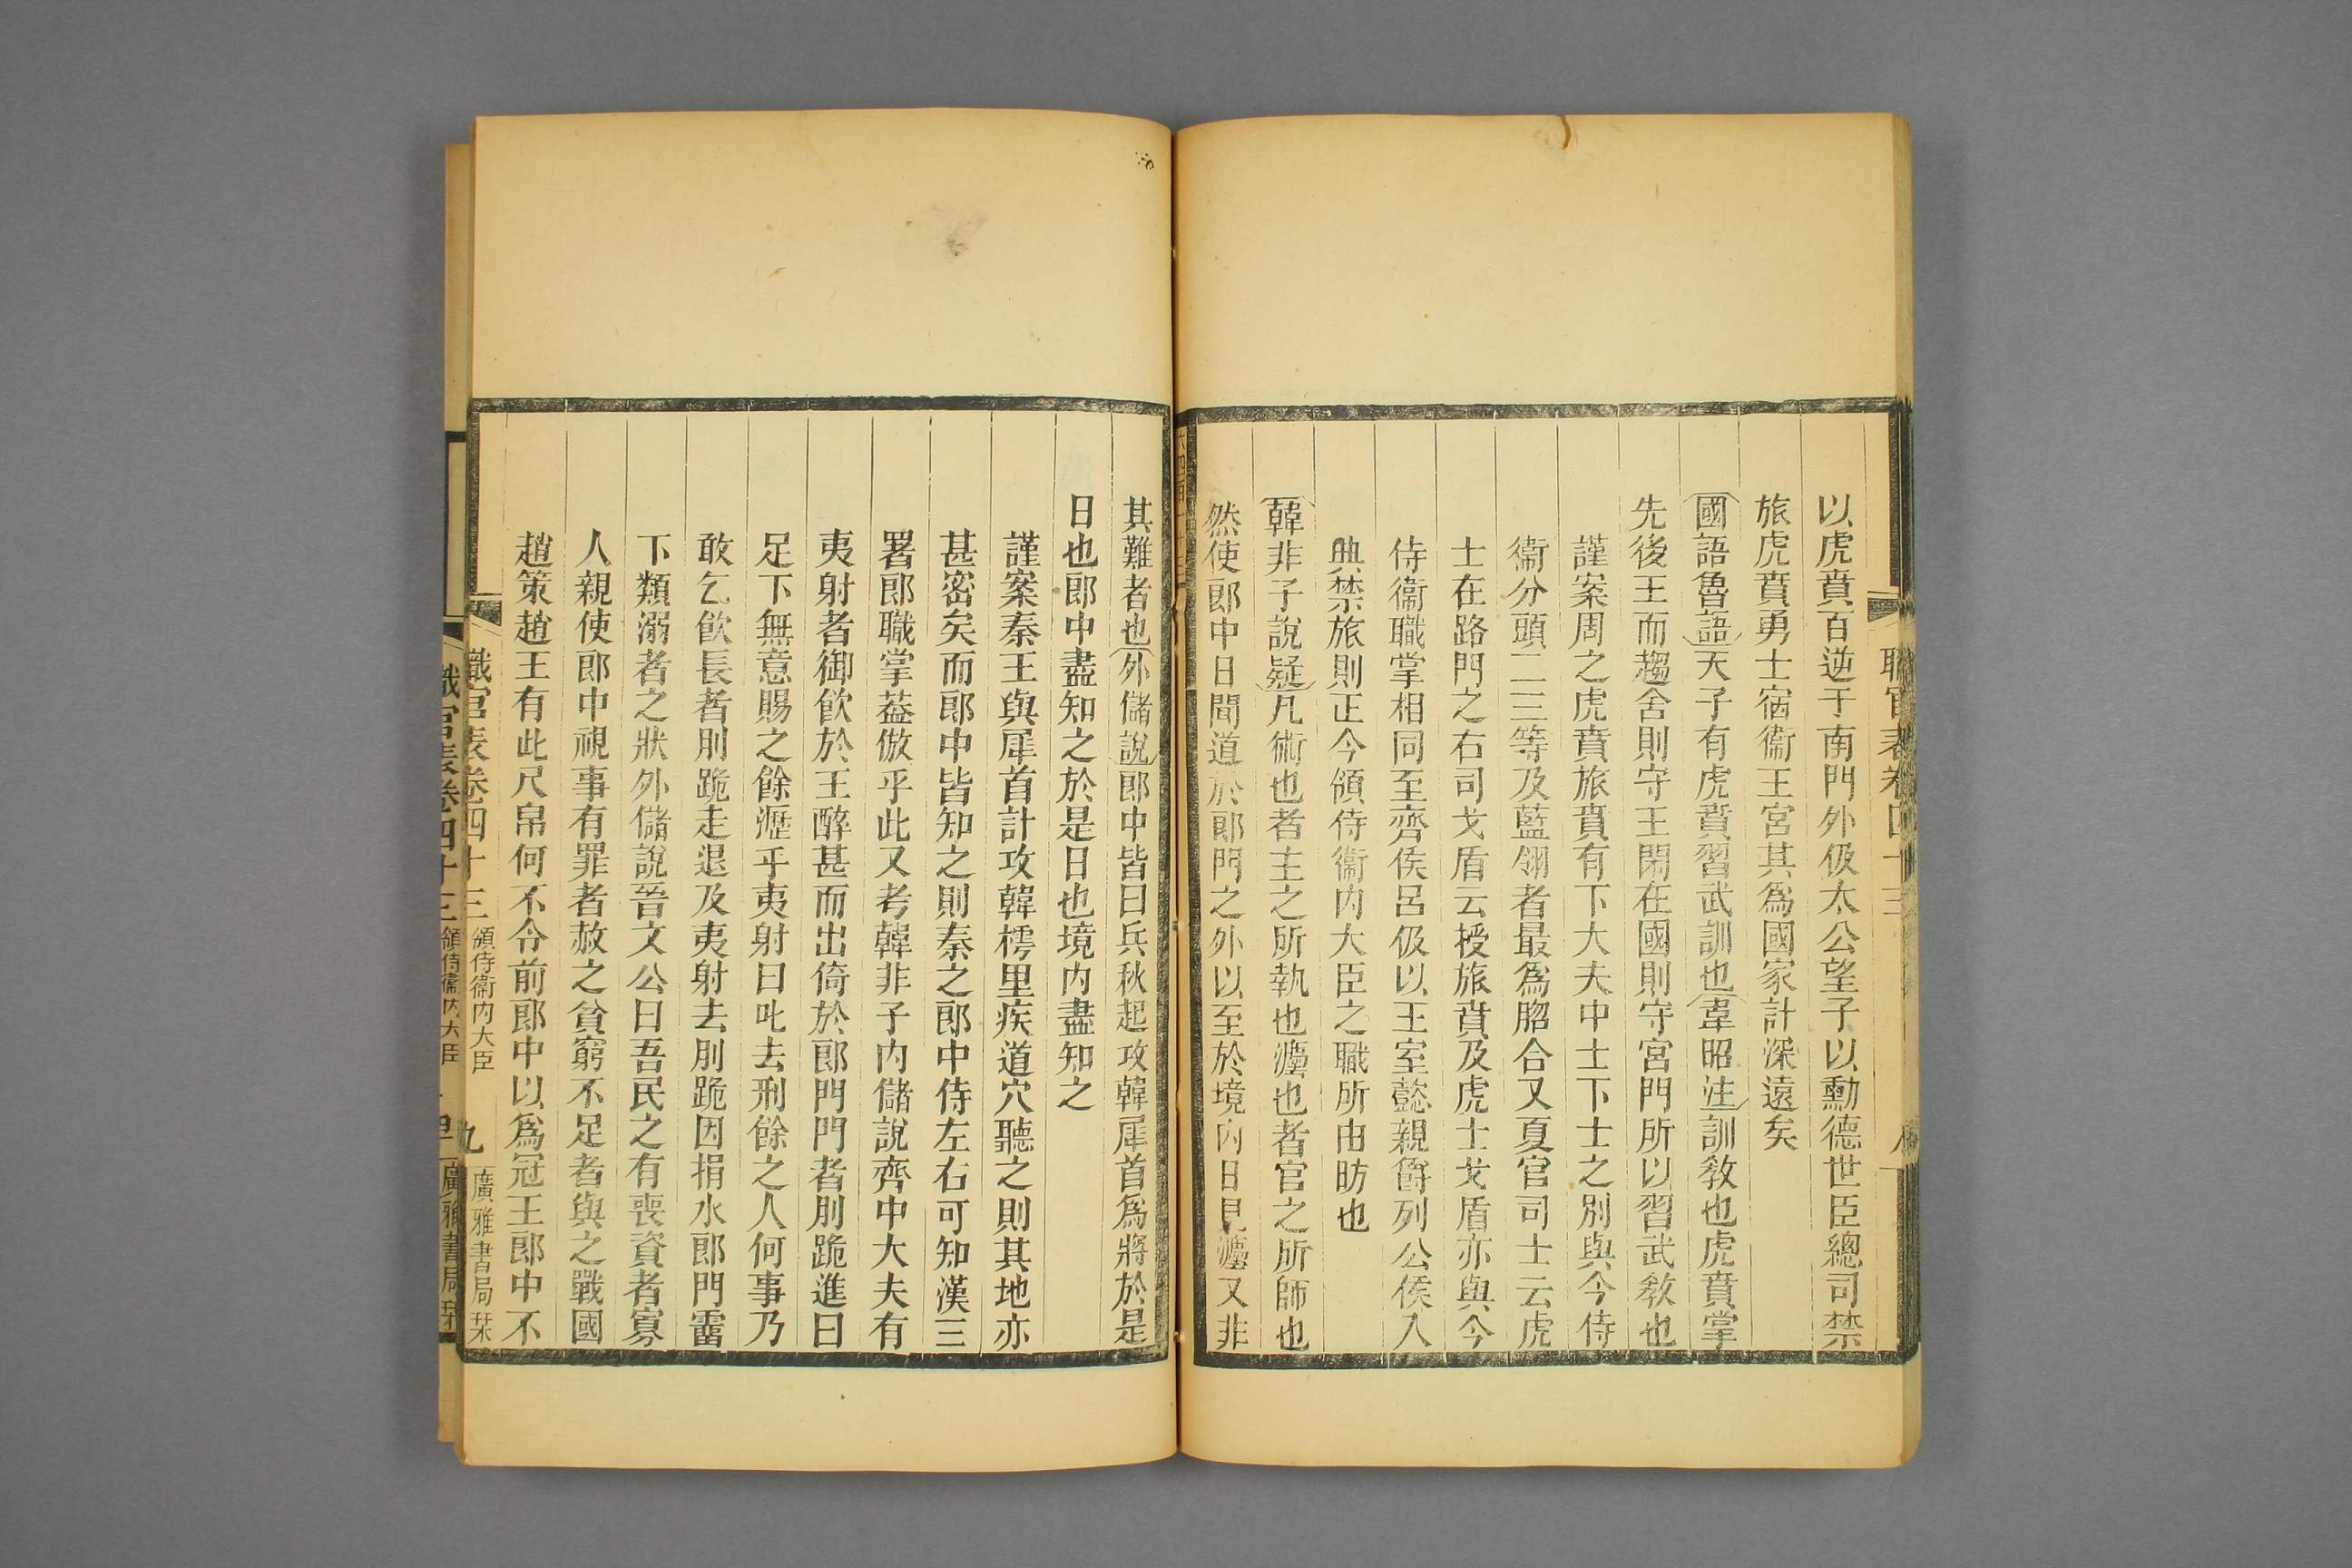 以虎賁百逆于南門外伋太公望子以勳德世臣總司禁
旅虎賁勇士宿衞王宮其爲國家計深遠矣
國語魯語天子有虎賁習武訓也韋昭注訓敎也虎賁掌
先後王而趨舍則守王閑在國則守宮門所以習武敎也
謹案周之虎賁旅賁有下大夫中士下士之別與今侍
衞分頭二三等及藍翎者最爲脗合又夏官司士云虎
士在路門之右司戈盾云授旅賁及虎士戈盾亦與今
侍衞職掌相同至齊侯呂伋以王室懿親爵列公侯入
典禁旅則正今領侍衞內大臣之職所由昉也
韓非子說疑凡術也者主之所執也灋也者官之所師也
然使郎中日聞道於郎門之外以至於境內日見灋又非
其難者也外儲說郎中皆曰兵秋起攻韓犀首爲將於是
日也郎中盡知之於是日也境內盡知之
謹案秦王與犀首計攻韓樗里疾道穴聽之則其地亦
甚密矣而郎中皆知之則秦之郎中侍左右可知漢三
署郎職掌葢倣乎此又考韓非子內儲說齊中大夫有
夷射者御飮於王醉甚而出倚於郎門門者刖跪進曰
足下無意賜之餘瀝乎夷射曰叱去刑餘之人何事乃
敢乞飮長者刖跪走退及夷射去刖跪因捐水郎門霤
下類溺者之狀外儲說晉文公曰吾民之有喪資者寡
人親使郎中視事有罪者赦之貧窮不足者與之戰國
趙策趙王有此尺帛何不令前郎中以爲冠王郎中不
職官表卷四十三 領侍衞內大臣 九 廣雅書局栞